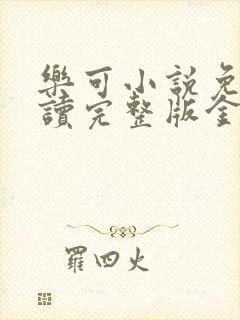 樂可小說免
讀完整版全
羅四火